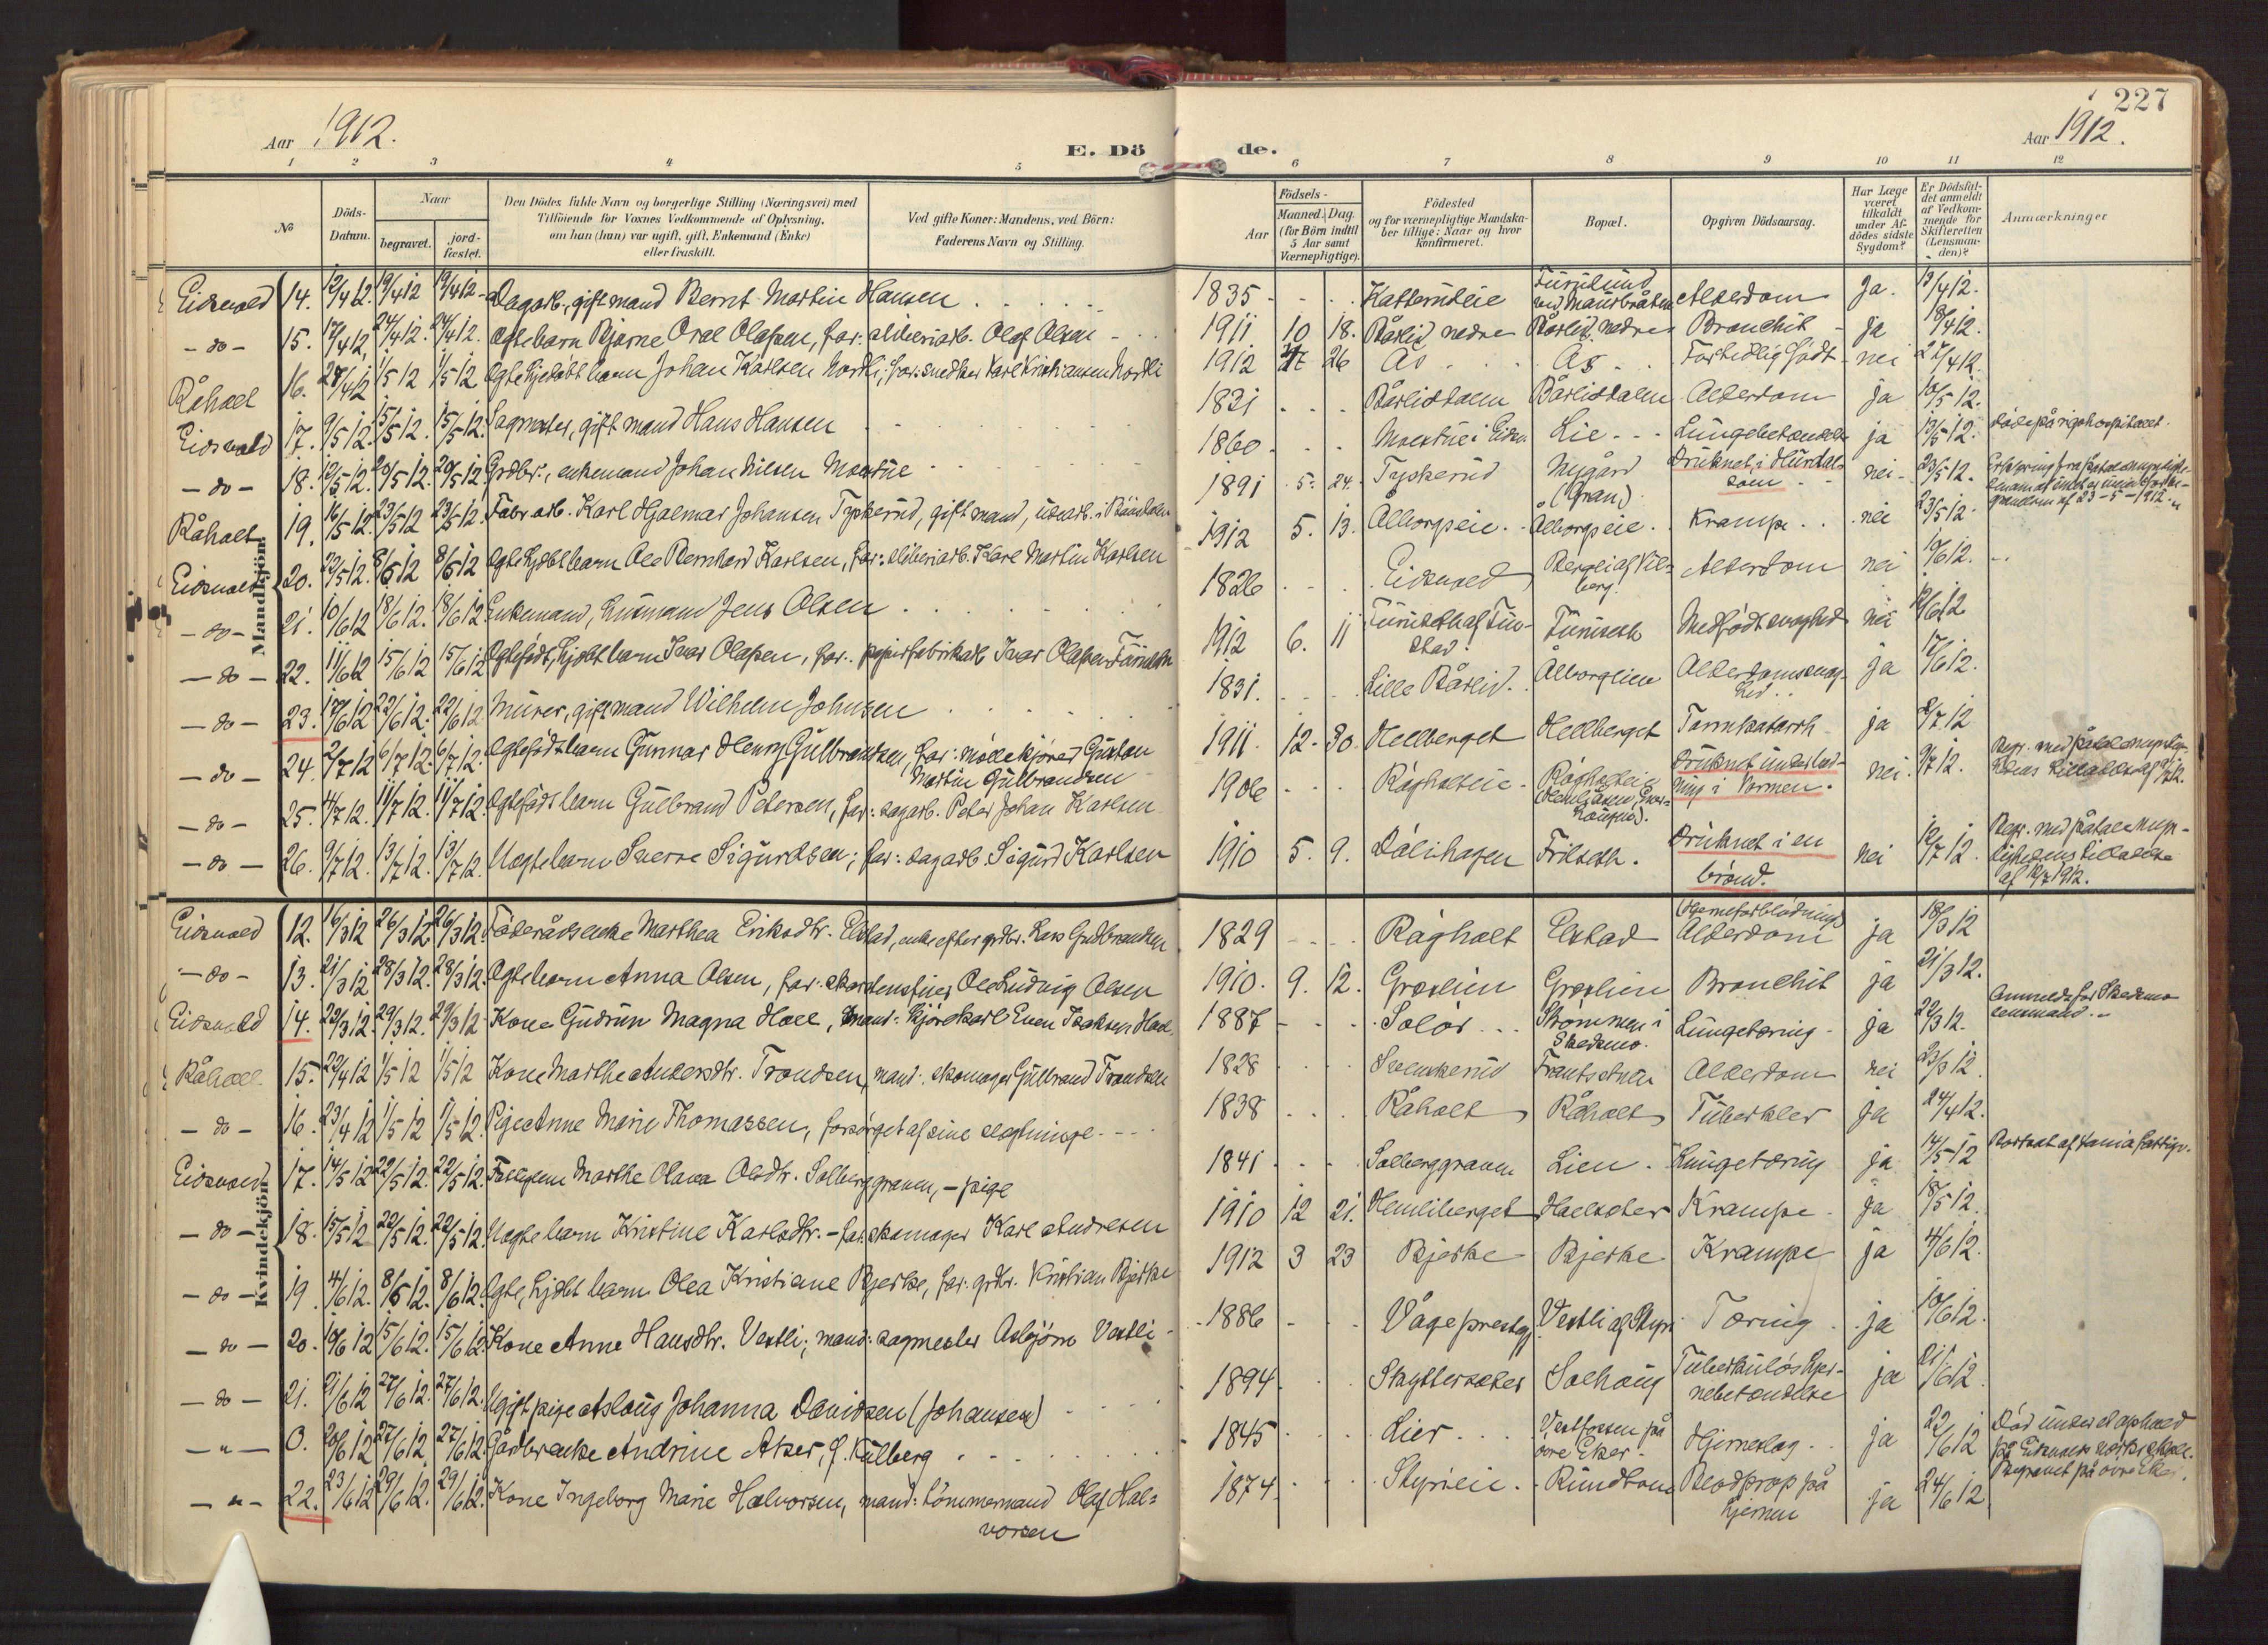 227
Aar 1912.
E. Dö
de.
Aar 1912.
1 2 3 4 5 6 7 8 9 10 11 12
No
Döds-
Datum.
Naar
begravet.
jord-
fæstet.
Den Dödes fulde Navn og borgerlige Stilling (Næringsvei) med
Tilföiende for Voxnes Vedkommende af Oplysning,
om han (hun) var ugift, gift, Enkemand (Enke)
eller fraskilt.
Ved gifte Koner: Mandens, ved Börn:
Faderens Navn og Stilling.
Aar
Födsels-
Maaned. Dag.
(for Börn indtil
5 Aar samt
Værnepligtige).
Födested
og for værnepligtige Mandska-
ber tillige: Naar og hvor
konfirmeret.
Bopæl.
Opgiven Dödsaarsag.
Har Læge
været
tilkaldt
under Af-
dödes sidste
Sygdom?
Er Dödsfal-
det anmeldt
af Vedkom-
mende for
Skifteretten
(Lensman-
den)?
Anmærkninger
Mandkjön.
Eidsvold 14. 12/4 12. 19/4 12 19/4 12. Dagarb., gift mand Bernt Martin Hansen 1835 Alderdom Ja. 13/4 12.
- do - 15. 17/4 12. 24/4 12. 24/4 12. Ægte barn Bjarne Oral Olafsen, far: Olaf Olsen 1911 10 18. Bårlid nedre Bårlid nedre Bronchit ja 18/4 12.
Råholt 16. 1/5 12 1/5 12 Ægte hjdøbt barn Johan Karlsen Nordli, far: snedker Karl Kristiansen Nordli 1912 26 Ås Ås Fortidlig født nei 12.
Eidsvold 17. 9/5 12. 15/5 12. 15/5 12. Sagmester, gift mand Hans Hansen 1831 Bårlidalen Bårlidalen Alderdom ja 10/5 12.
- do - 18. 12/5 12. 20/5 12. 20/5 12. Grdbr., enkemand Johan Nilsen Morstue 1860 Morstue i Eidsv. Lie Lungebetændelse ja 13/5 12. døde på rigshospitalet.
Råholt 19. 16/5 12. 23/5 12 23/5 12. Fabr.arb. Karl Hjalmar Johansen Tyskerud, gift mand, 1891 5. 24. Tyskerud Nygård (Gran). Druknet i Hurdal- nei 23/5 12.
Eidsvold 20. 23/5 12. 8/6 12 8/6 12 Ægte hjdøbt barn Ole Bernhard Karlsen, far: Karl Martin Karlsen 1912 5. 13. Ålborgseie Ålborgseie Krampe nei 23/5 12.
- do - 21. 10/6 12 18/6 12. 18/6 12. Enkemand, husmand Jens Olsen 1826 Eidsvold Alderdom nei 10/6 12.
- do - 22. 11/6 12 15/6 12 15/6 12 Ægtefødt, hjdøbt barn Ivar Olafsen, far: papirfabrikarb. Ivar Olafsen 1912 6. 11 Medfødt svaghed nei 12/6 12
- do - 23. 17/6 12 22/6 12. 22/6 12. Murer, gift mand Wilhelm Johnsen 1831. Lille Bårlid. Ålborglien Alderdomssvag- hed ja 17/6 12.
- do - 24. 2/7 12 6/7 12 6/7 12. Ægtefødt barn Gunnar Henry Gulbrandsen, far: møllekjører Gustav
Martin Gulbrandsen 1911. 12. 30. Hellberget Hellberget Tarmkatarrh ja 2/7 12
- do - 25. 4/7 12. 11/7 12. 11/7 12. Ægtefødt barn Gulbrand Petersen, far: sagarb. Peter Johan Karlsen 1906 Rågholteie Druknet under bad-
ning i Vormen. nei. 9/7 12.
- do - 26. 9/7 12. 13/7 12. 13/7 12. Uægte barn Sverre Sigurdsen; far: sagarb. Sigurd Karlsen 1910 5. 9. Dålihagen Frilseth. Druknet i en
brønd. nei 12/7 12. Begr. med påtalemyn-
dighedens tilladelse
af 12/7 1912.
Kvindekjön.
Eidsvold 12. 16/3 12 26/3 12 26/3 12. Føderådsenke Marthea Eriksdtr. Elstad, enke efter grdbr. Lars Gudbrandsen 1829 Rågholt Elstad (Hjerneforblødning)
Alderdom ja 18/3 12
- do - 13. 21/3 12 28/3 12. 28/3 12. Ægte barn Anna Olsen, far: skorstensfeier Ole Ludvig Olsen 1910. 9. 12. Græslien Græslien Bronchit ja 21/3 12.
Eidsvold 14. 22/3 12. 29/3 12. 29/3 12. Kone Gudrun Magna Hoel, mand: kjørekarl Even Isaksen Hoel 1887 Solør Strømmen i
Skedsmo. Lungetæring ja 22/3 12. Anmeldt for Skedsmo
lensmand.
Råholt 15. 22/4 12 1/5 12 1/5 12 Kone Marthe Andersdtr. Trondsen, mand: skomager Gulbrand Trondsen 1828 Svenskerud Alderdom nei 23/3 12.
- do - 16. 23/4 12 1/5 12 1/5 12. Pige Anne Marie Thomassen, forsørget af sine slegtninge 1838 Råholt Råholt Tuberkler ja 24/4 12.
Eidsvold 17. 14/5 12 22/5 12. 22/5 12. Marthe Olava Olsdtr. Solberggraven, - pige 1841. Solberggraven Lien Lungetæring ja 14/5 12
- do - 18. 15/5 12 22/5 12. 22/5 12. Uægte barn Kristine Karlsdtr. - far: skomager Karl Andresen 1910 12 21. Hemliberget Krampe ja 18/5 12.
- do - 19. 4/6 12. 8/6 12. 8/6 12. Ægte, hjdøbt barn Olea Kristiane Bjerke, far: grdbr. Kristian Bjerke 1912 3 23 Bjerke Bjerke Krampe ja 4/6 12.
- do - 20. 10/6 12 15/6 12. 15/6 12. Kone Anne Hansdtr. Vestli; mand: sagmester Asbjørn Vestli 1886 Våge prestegj. Vestli af Styri Tæring ja 10/6 12.
- do - 21. 21/6 12 27/6 12. 27/6 12. Ugift pige Aslaug Johanna Davidsen (Johansen) 1894 Solhaug Tuberkuløs hjer-
nebetændelse ja 21/6 12
- " - 0. 20/6 12 27/6 12 27/6 12 Gårdbr.enke Andrine Aker, f. Kulberg 1845 Lier Vestfossen på
øvre Eker Hjerneslag ja 22/6 12 Død under et ophold
på Eidsvolds
Begravet på øvre Eker.
- " - 22. 23/6 12 29/6 12. 29/6 12. Kone Ingeborg Marie Halvorsen, mand: tømmermand Olaf Hal=
vorsen 1874. Styrieie Blodprop på
hjernen ja 24/6 12